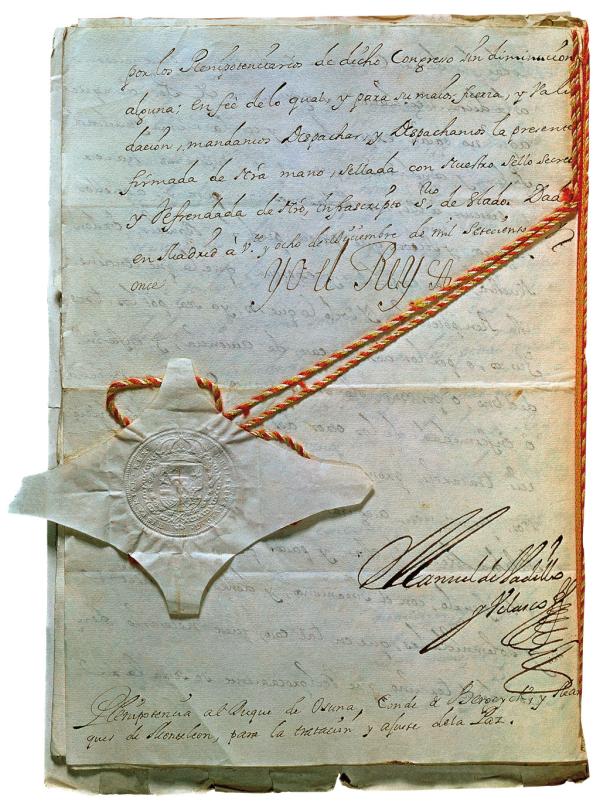 por los Plenipotenciarios de dicho Congreso sin diminucion
alguna; en feè de lo qual, y para su maior fuerza, y Vali
dacion, mandamos Despachar, y Despachamos la presente
firmada de Nrã mano, sellada con Nuestro Sello Secre
y Refrendada de Nrõ, infrascripto S.rio de Estado. Dada
en Madrid à y ocho de de mil setecientos
once
YO el Rey
Manuel de Vadillo
y Velasco
Plenipotencia al Duque de Osuna, Conde de Bergeyck, y Mar
ques de Monteleon, para la tratacion y ajuste dela Paz.